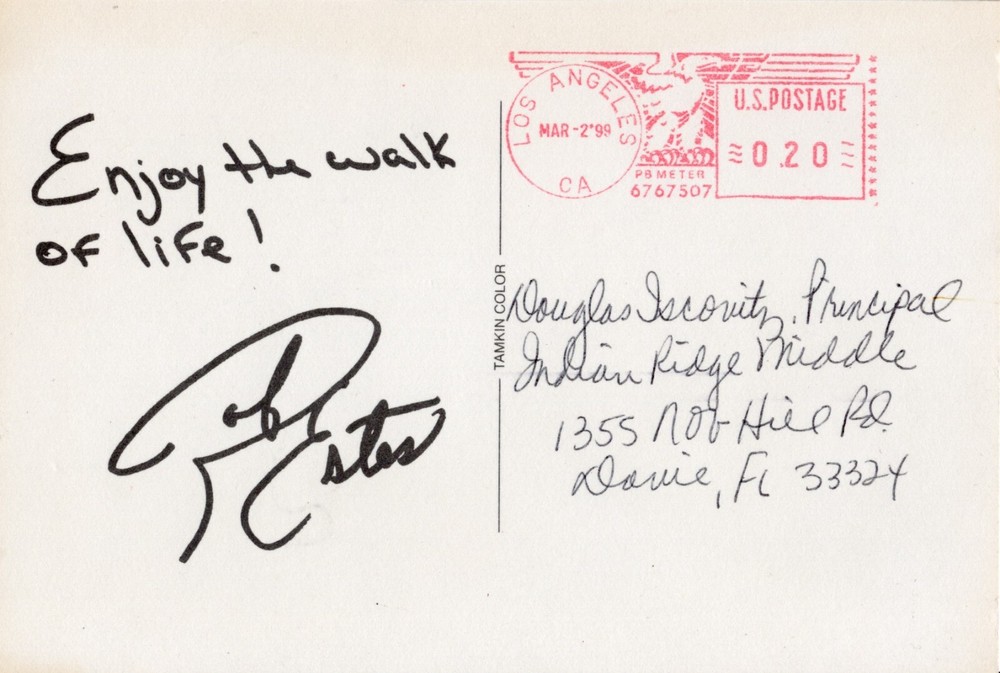 Enjoy the walk
of life!
Rob Estes
LOS ANGELES
MAR-2'99
CA
PB METER
6767507
U.S.POSTAGE
0.20
TAMKIN COLOR
Douglas Iscovitz, Principal
Indian Ridge Middle
1355 Nob Hill Rd.
Davie, Fl 33324